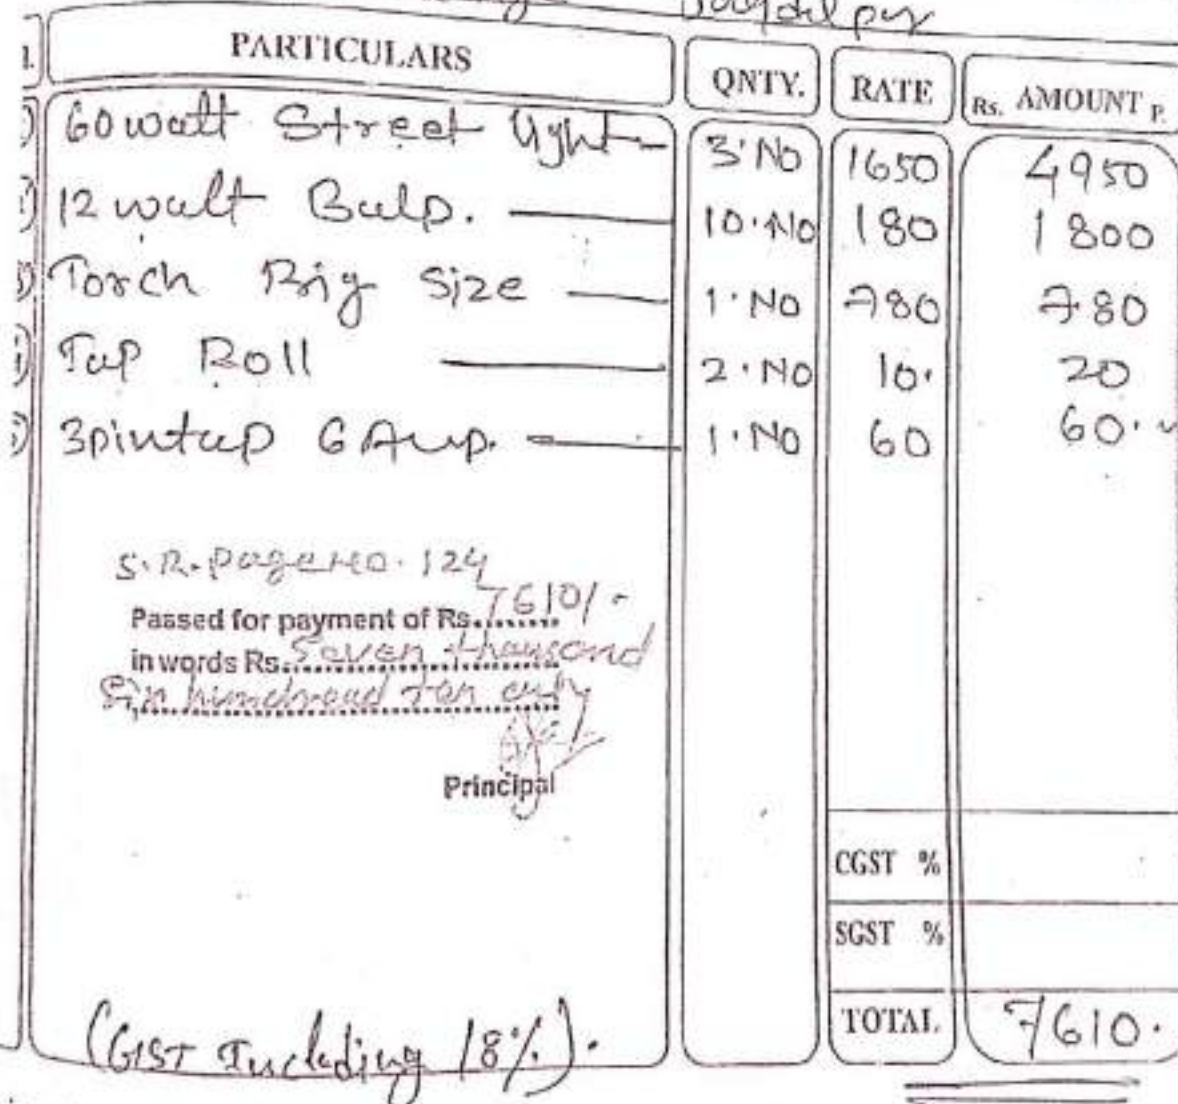 PARTICULARS QNTY. RATE Rs. AMOUNT P.
60 watt Street Light 3.No 1650 4950
12 watt Bulp. 10.No 180 1800
Torch Big Size 1.No 780 780
Tap Roll 2.No 10. 20
3pintap 6 Amp. 1.No 60 60.
S.R. Page No. 124
Passed for payment of Rs. 7610/-
in words Rs. Seven thousand
Six hundread Ten only
Principal
CGST %
SGST %
TOTAL 7610.
(GST Including 18%).